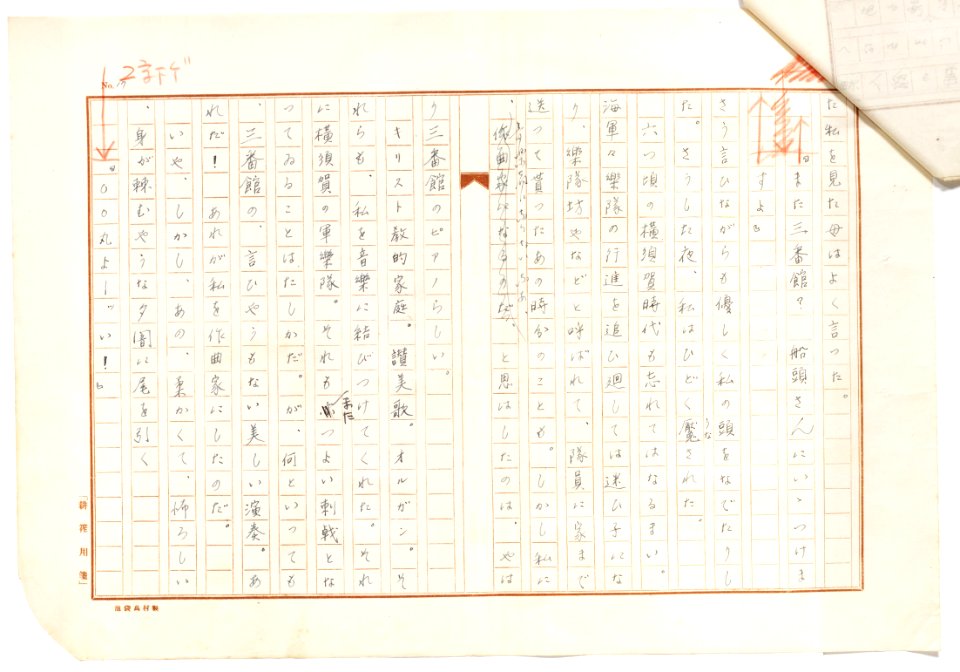 2字下ゲ
た私を見た母はよく言った。
「また三番館? 船頭さんにいゝつけま
すよ」
さう言ひながらも優しく私の頭をなでたりし
た。さうした夜、私はひどく魘うなされた。
六つ頃の横須賀時代も忘れてはなるまい。
海軍々樂隊の行進を追ひ廻しては迷ひ子にな
り、樂隊坊やなどと呼ばれて、隊員に家まで
送って貰ったあの時分のことも。しかし私に
、作曲家になるのだ、と思はしたのは、やは
り三番館のピアノらしい。
キリスト教的家庭。讃美歌。オルガン。そ
れらも、私を音樂に結びつけてくれた。それ
に横須賀の軍樂隊。それもまたつよい刺戟とな
ってゐることはたしかだ。が、何といっても
、三番館の、言ひやうもない美しい演奏。あ
れだ! あれが私を作曲家にしたのだ。
いや、しかし、あの、柔かくて、怖ろしい
、身が竦むやうな夕闇に尾を引く
「〇〇丸よーーい!」
製村島袋池